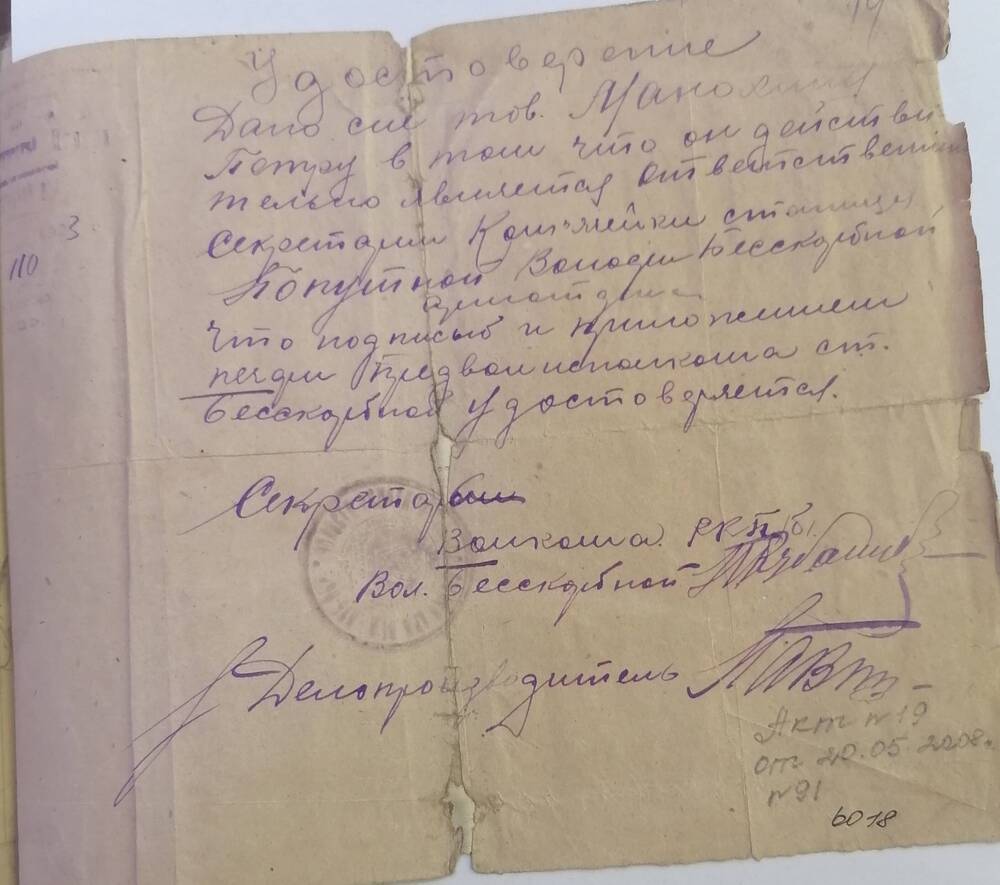 Удостоверение
Дано сие тов. Манохину
Петру в том что он действи
тельно является ответственным
Секретарем Ком'ячейки станицы
Попутной Волости Бесскорбной
Что подписью и приложением
печати Предволисполкома ст.
Бесскорбной удостоверяется.
Секретарь
Волкома РКП(б).
Вол. Бесскорбной
Делопроизводитель
Акт №19
от 20.05 2008г.
№91
6018
3
110